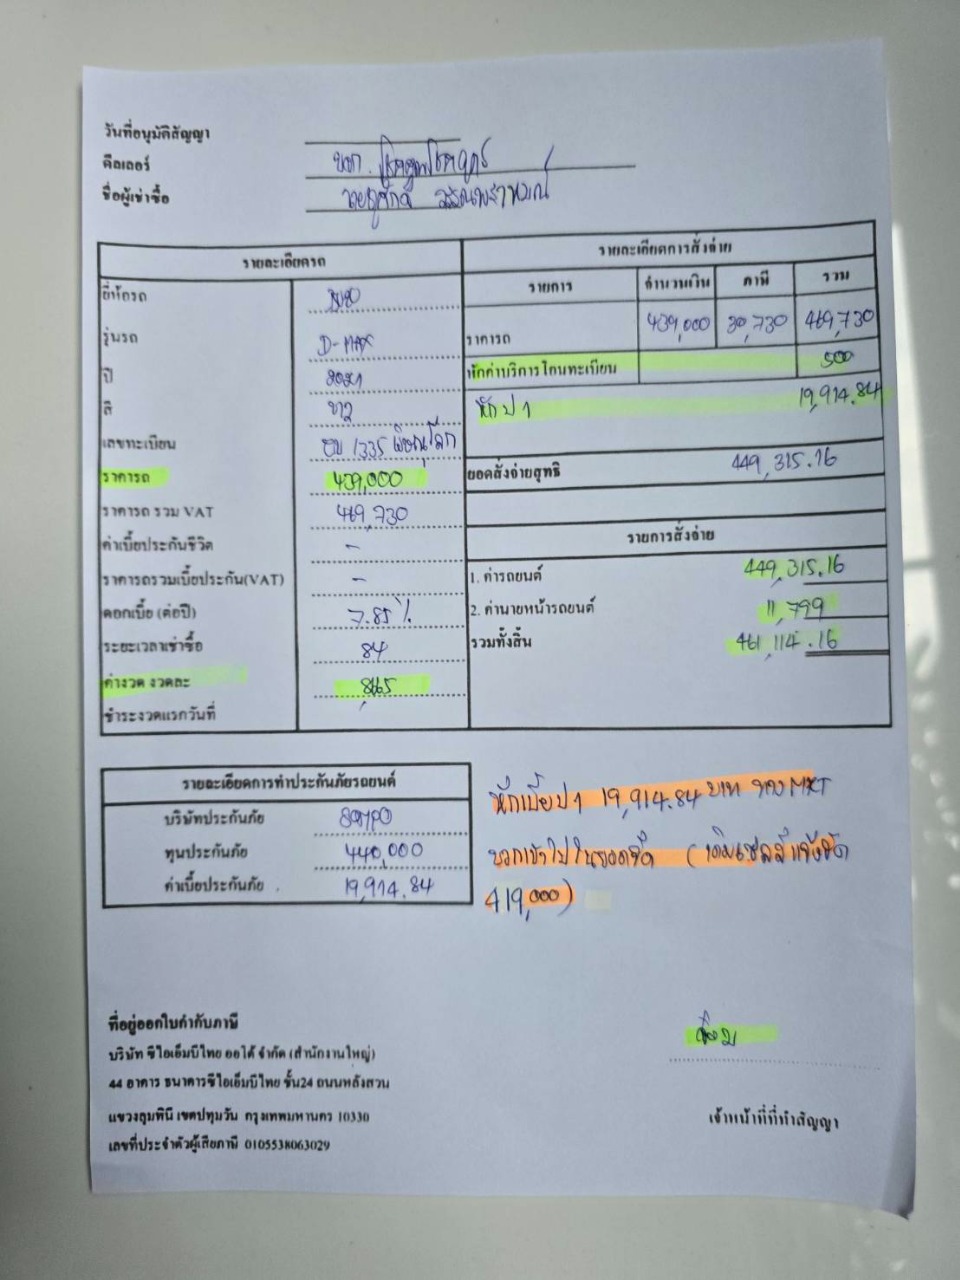 วันที่อนุมัติสัญญา
ดีลเลอร์ บจก.
ชื่อผู้เช่าซื้อ
รายละเอียดรถ
ยี่ห้อรถ
รุ่นรถ D-MAX
ปี 2021
สี ขาว
เลขทะเบียน 1335 พิษณุโลก
ราคารถ 439,000
ราคารถ รวม VAT 469,730
ค่าเบี้ยประกันชีวิต -
ราคารถรวมเบี้ยประกัน(VAT) -
ดอกเบี้ย (ต่อปี) 7.85 %
ระยะเวลาเช่าซื้อ 84
ค่างวด งวดละ 8,665
ชำระงวดแรกวันที่
รายละเอียดการสั่งจ่าย
รายการ จำนวนเงิน ภาษี รวม
ราคารถ 439,000 30,730 469,730
หักค่าบริการโอนทะเบียน 500
หัก ป 1 19,914.84
ยอดสั่งจ่ายสุทธิ 449,315.16
รายการสั่งจ่าย
1. ค่ารถยนต์ 449,315.16
2. ค่านายหน้ารถยนต์ 11,799
รวมทั้งสิ้น 461,114.16
รายละเอียดการทำประกันภัยรถยนต์
บริษัทประกันภัย
ทุนประกันภัย 440,000
ค่าเบี้ยประกันภัย 19,914.84
หักเบี้ย ป 1 19,914.84 บาท ของ MKT
บวกเข้าไปในยอดจัด (เดิมเซลล์แจ้งจัด
419,000)
ที่อยู่ออกใบกำกับภาษี
บริษัท ซีไอเอ็มบีไทย ออโต้ จำกัด (สำนักงานใหญ่)
44 อาคาร ธนาคารซีไอเอ็มบีไทย ชั้น24 ถนนหลังสวน
แขวงลุมพินี เขตปทุมวัน กรุงเทพมหานคร 10330
เลขที่ประจำตัวผู้เสียภาษี 0105538063029
เจ้าหน้าที่ที่ทำสัญญา